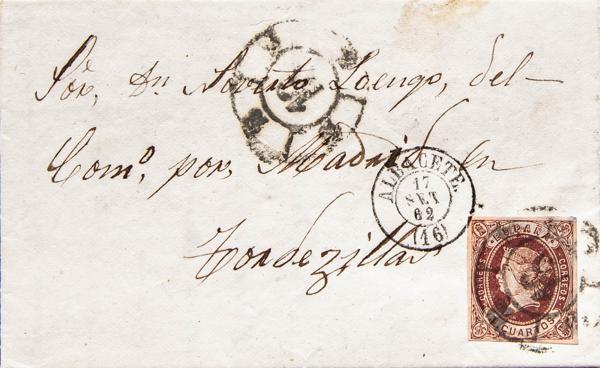 Sör, Dn. Loengo, del
Com.º, por Madrid en
Tordezillas
ALBACETE
17
SET
62
(16)
ESPAÑA
CORREOS
CORREOS
4 CUARTOS